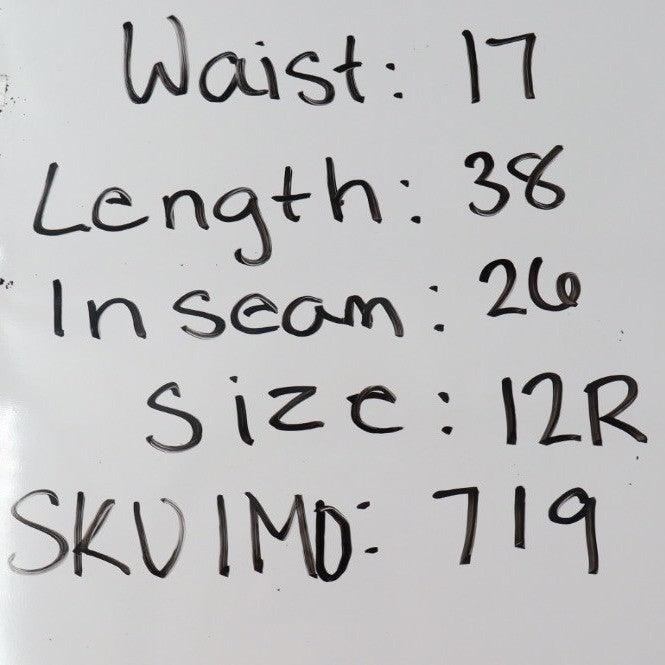 Waist: 17
Length: 38
Inseam: 26
Size: 12R
SKU IMD: 719